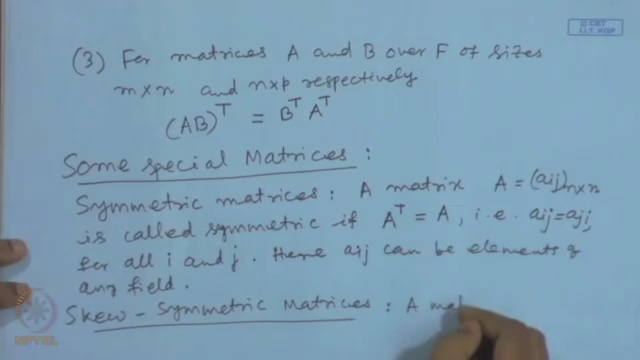 © CET
I.I.T. KGP
(3) For matrices A and B over F of sizes
m×n and n×p respectively
(AB)^T = B^T A^T
Some special Matrices :
Symmetric matrices : A matrix A = (aij)n×n
is called symmetric if A^T = A, i.e. aij = aji,
for all i and j. Here aij can be elements of
any field.
Skew - Symmetric Matrices : A mat
NPTEL